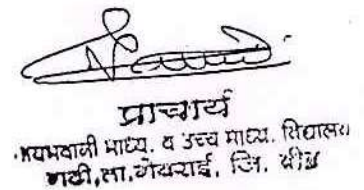 प्राचार्य
माध्य. व उच्च माध्य. विद्यालय
गढी,ता.गेवराई, जि. बीड